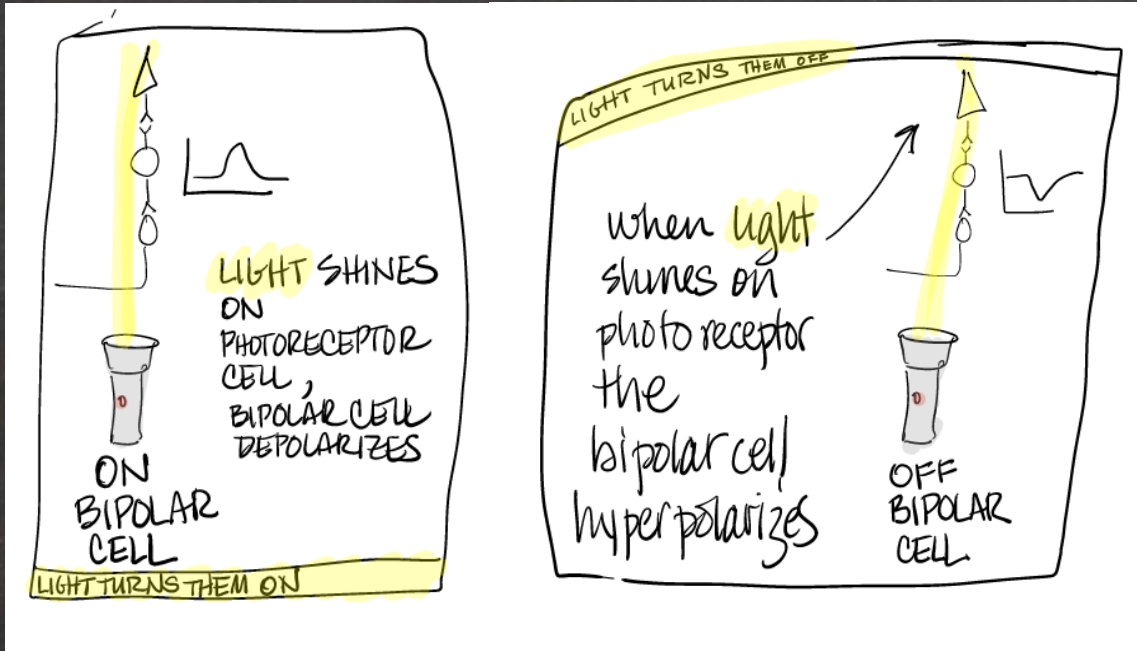 LIGHT SHINES
ON
PHOTORECEPTOR
CELL,
BIPOLAR CELL
DEPOLARIZES
ON
BIPOLAR
CELL
LIGHT TURNS THEM ON
LIGHT TURNS THEM OFF
when light
shines on
photoreceptor
the
bipolar cell
hyperpolarizes
OFF
BIPOLAR
CELL